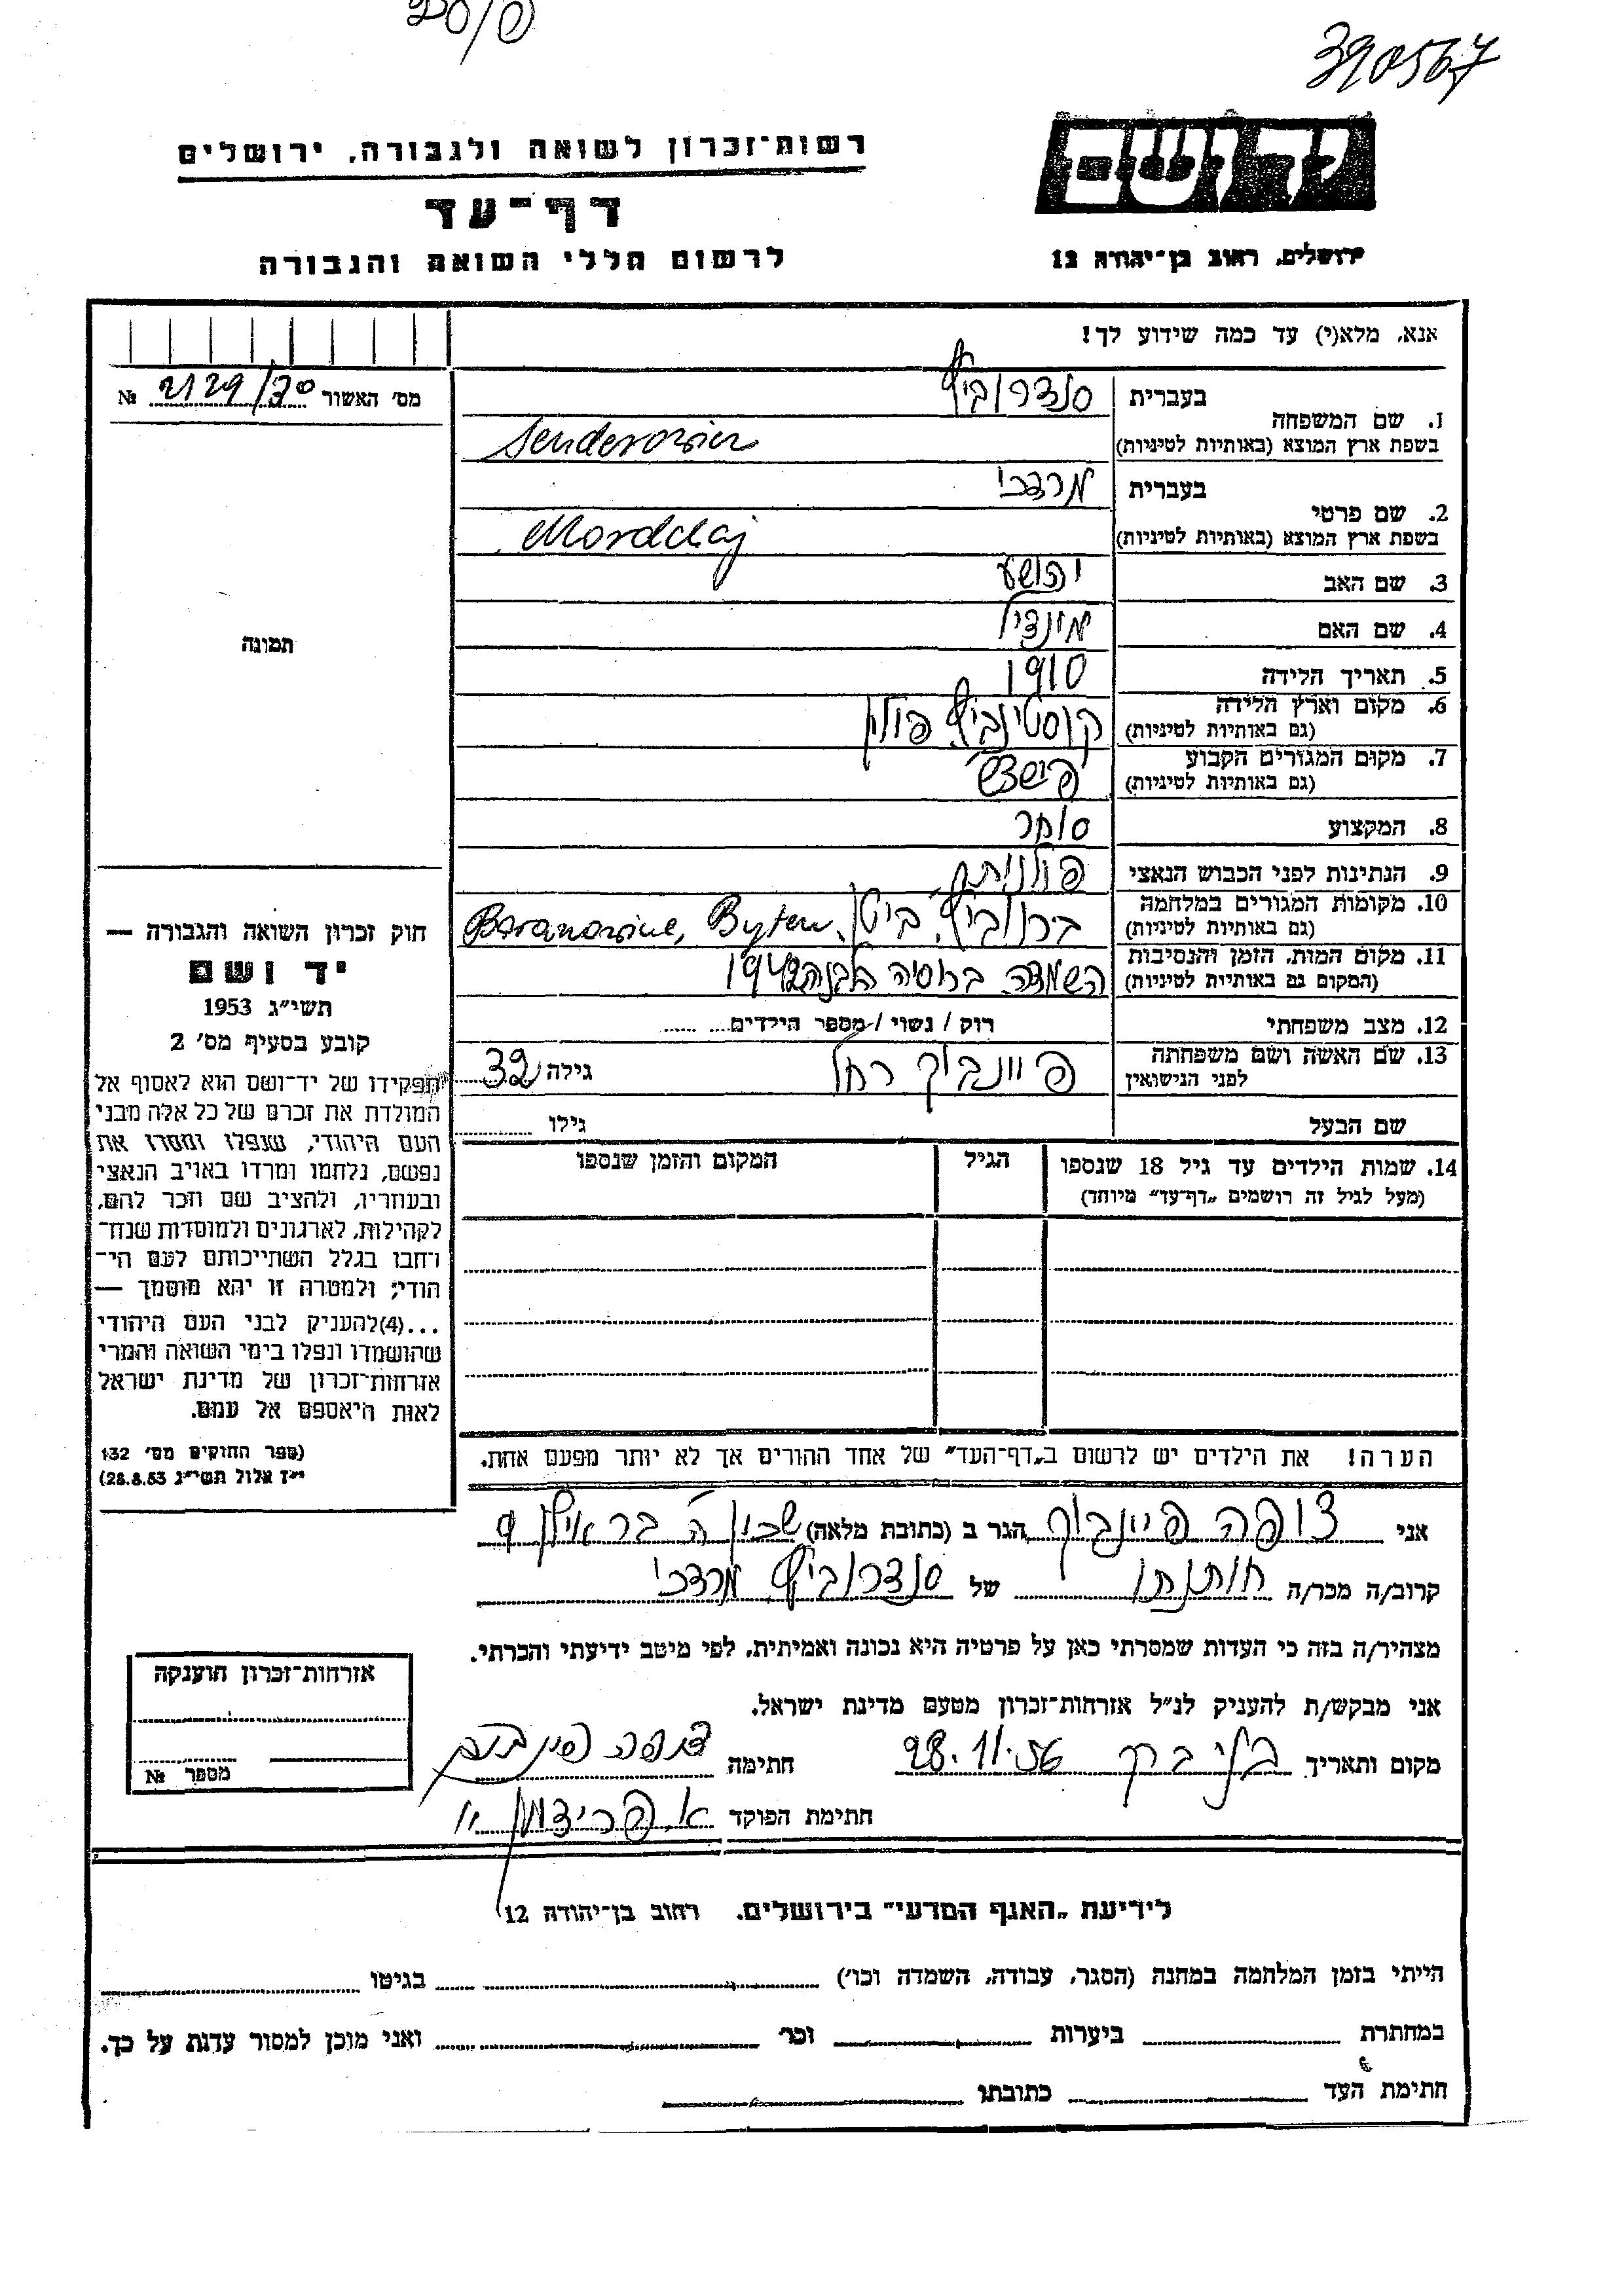 390567
יד ושם
רשות־זכרון לשואה ולגבורה, ירושלים
דף־עד
לרשום חללי השואה והגבורה
ירושלים, רחוב בן־יהודה 12
אנא, מלא(י) עד כמה שידוע לך!
מס' האשור 2129/30 №
תמונה
1. שם המשפחה בעברית סנדרוביץ
בשפת ארץ המוצא (באותיות לטיניות) Senderowicz
2. שם פרטי בעברית מרדכי
בשפת ארץ המוצא (באותיות לטיניות) Mordchaj
3. שם האב יהושע
4. שם האם מינדיל
5. תאריך הלידה 1910
6. מקום וארץ הלידה קוסטינוביץ פולין
(גם באותיות לטיניות)
7. מקום המגורים הקבוע
(גם באותיות לטיניות)
8. המקצוע סוחר
9. הנתינות לפני הכבוש הנאצי פולנית
10. מקומות המגורים במלחמה ברנוביץ, ביטן, Baranowicze, Byten
(גם באותיות לטיניות)
11. מקום המות, הזמן והנסיבות השמדה ברוסיה הלבנה 1942
(המקום גם באותיות לטיניות)
12. מצב משפחתי רוק / נשוי / מספר הילדים
13. שם האשה ושם משפחתה פיינבוך רחל גילה 32
לפני הנישואין
שם הבעל גילו
14. שמות הילדים עד גיל 18 שנספו הגיל המקום והזמן שנספו
(מעל לגיל זה רושמים „דף־עד" מיוחד)
הערה! את הילדים יש לרשום ב„דף־העד" של אחד ההורים אך לא יותר מפעם אחת.
חוק זכרון השואה והגבורה —
יד ושם
תשי"ג 1953
קובע בסעיף מס' 2
תפקידו של יד־ושם הוא לאסוף אל
המולדת את זכרם של כל אלה מבני
העם היהודי, שנפלו ומסרו את
נפשם, נלחמו ומרדו באויב הנאצי
ובעוזריו, ולהציב שם וזכר להם,
לקהילות, לארגונים ולמוסדות שנח־
רבו בגלל השתייכותם לעם הי־
הודי; ולמטרה זו יהא מוסמך —
...(4) להעניק לבני העם היהודי
שהושמדו ונפלו בימי השואה והמרי
אזרחות־זכרון של מדינת ישראל
לאות היאספם אל עמם.
(ספר החוקים מס' 132,
י"ז אלול תשי"ג 28.8.53)
אני צופה פיינבוך הגר ב (כתובת מלאה) שכון ה' בר אילן 9
קרוב/ה מכר/ה חותנתו של סנדרוביץ מרדכי
מצהיר/ה בזה כי העדות שמסרתי כאן על פרטיה היא נכונה ואמיתית, לפי מיטב ידיעתי והכרתי.
אני מבקש/ת להעניק לנ"ל אזרחות־זכרון מטעם מדינת ישראל.
מקום ותאריך בני ברק 28.11.56 חתימה צופה פיינבוך
חתימת הפוקד א. פרידמן
אזרחות־זכרון הוענקה
מספר №
לידיעת „האגף המדעי" בירושלים, רחוב בן־יהודה 12
הייתי בזמן המלחמה במחנה (הסגר, עבודה, השמדה וכו') בגיטו
במחתרת ביערות וכו' ואני מוכן למסור עדות על כך.
חתימת העד כתובתו